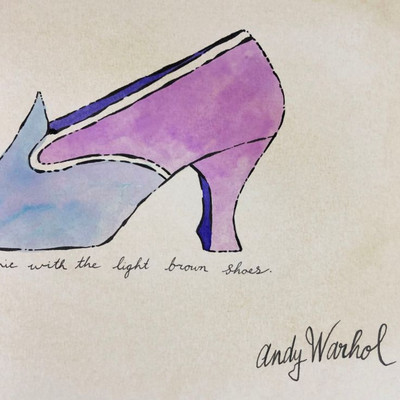 with the light brown shoes.
Andy Warhol